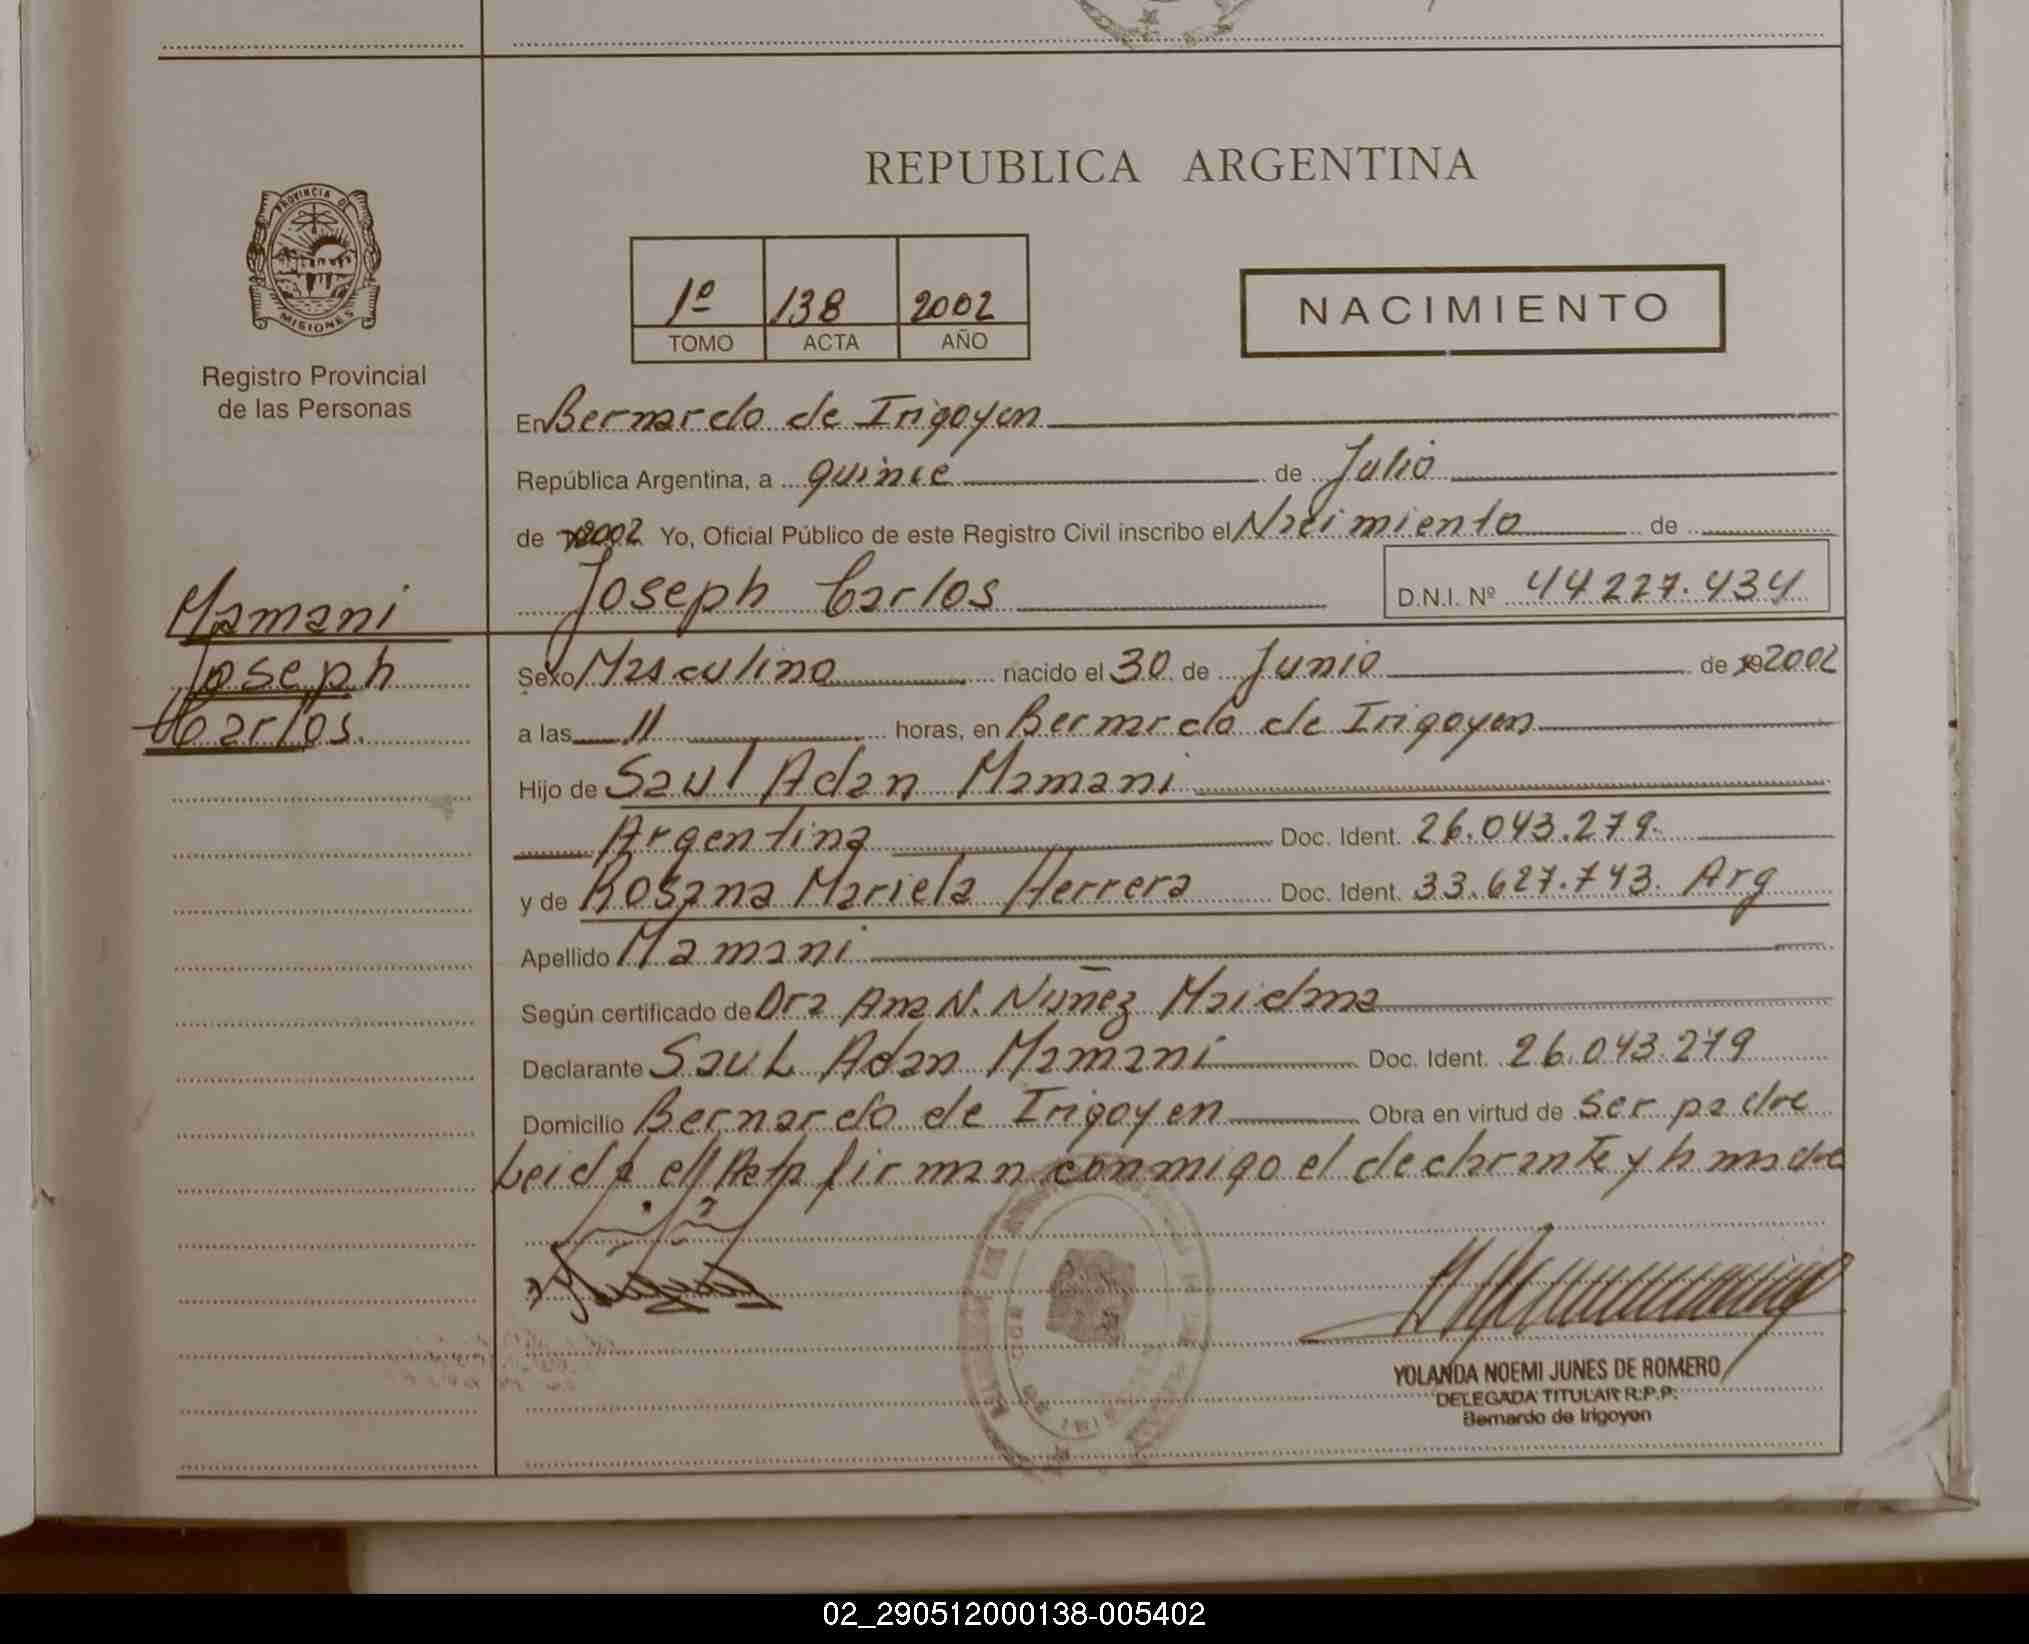 REPUBLICA ARGENTINA
PROVINCIA DE
MISIONES
Registro Provincial
de las Personas
1º 138 2002
TOMO ACTA AÑO
NACIMIENTO
En Bernardo de Irigoyen
República Argentina, a quince de Julio
de 2002 Yo, Oficial Público de este Registro Civil inscribo el Nacimiento de
Joseph Carlos D.N.I. Nº 44227.434
Mamani
Joseph
Carlos.
Sexo Masculino nacido el 30 de Junio de 2002
a las 11 horas, en Bernardo de Irigoyen
Hijo de Saul Adan Mamani
Argentina Doc. Ident. 26.043.279.
y de Rosana Mariela Herrera Doc. Ident. 33.627.743. Arg
Apellido Mamani
Según certificado de Dra Ana N. Nuñez Maidana
Declarante Saul Adan Mamani Doc. Ident. 26.043.279
Domicilio Bernardo de Irigoyen Obra en virtud de ser padre
Leida el Acta firman conmigo el declarante y la madre
YOLANDA NOEMI JUNES DE ROMERO
DELEGADA TITULAR R.P.P.
Bernardo de Irigoyen
02_290512000138-005402